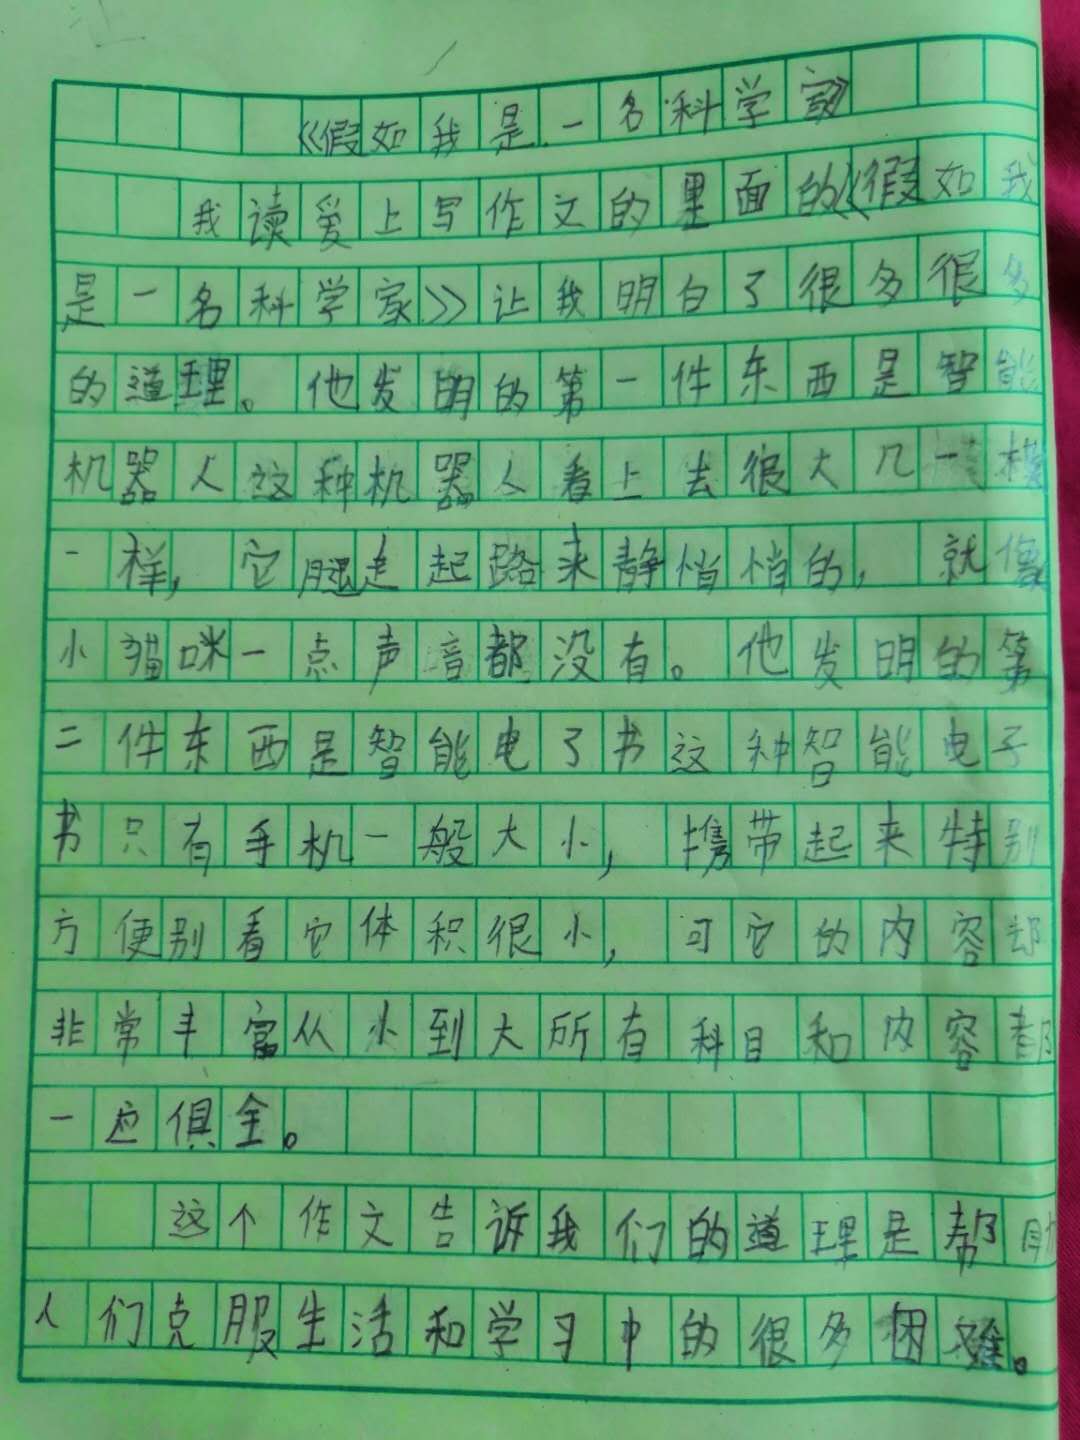 《假如我是一名科学家》
我读爱上写作文的里面的《假如我
是一名科学家》让我明白了很多很多
的道理。他发明的第一件东西是智能
机器人这种机器人看上去很大几一模
一样，它腿走起路来静悄悄的，就像
小猫咪一点声音都没有。他发明的第
二件东西是智能电了书这种智能电子
书只有手机一般大小，携带起来特别
方便别看它体积很小，可它的内容却
非常丰富从小到大所有科目和内容都
一应俱全。
这个作文告诉我们的道理是帮助
人们克服生活和学习中的很多困难。